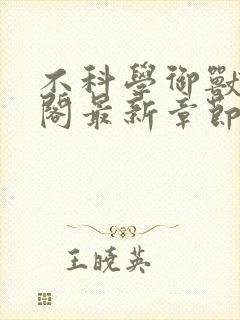 不科學御獸
閣最新章節
王曉英